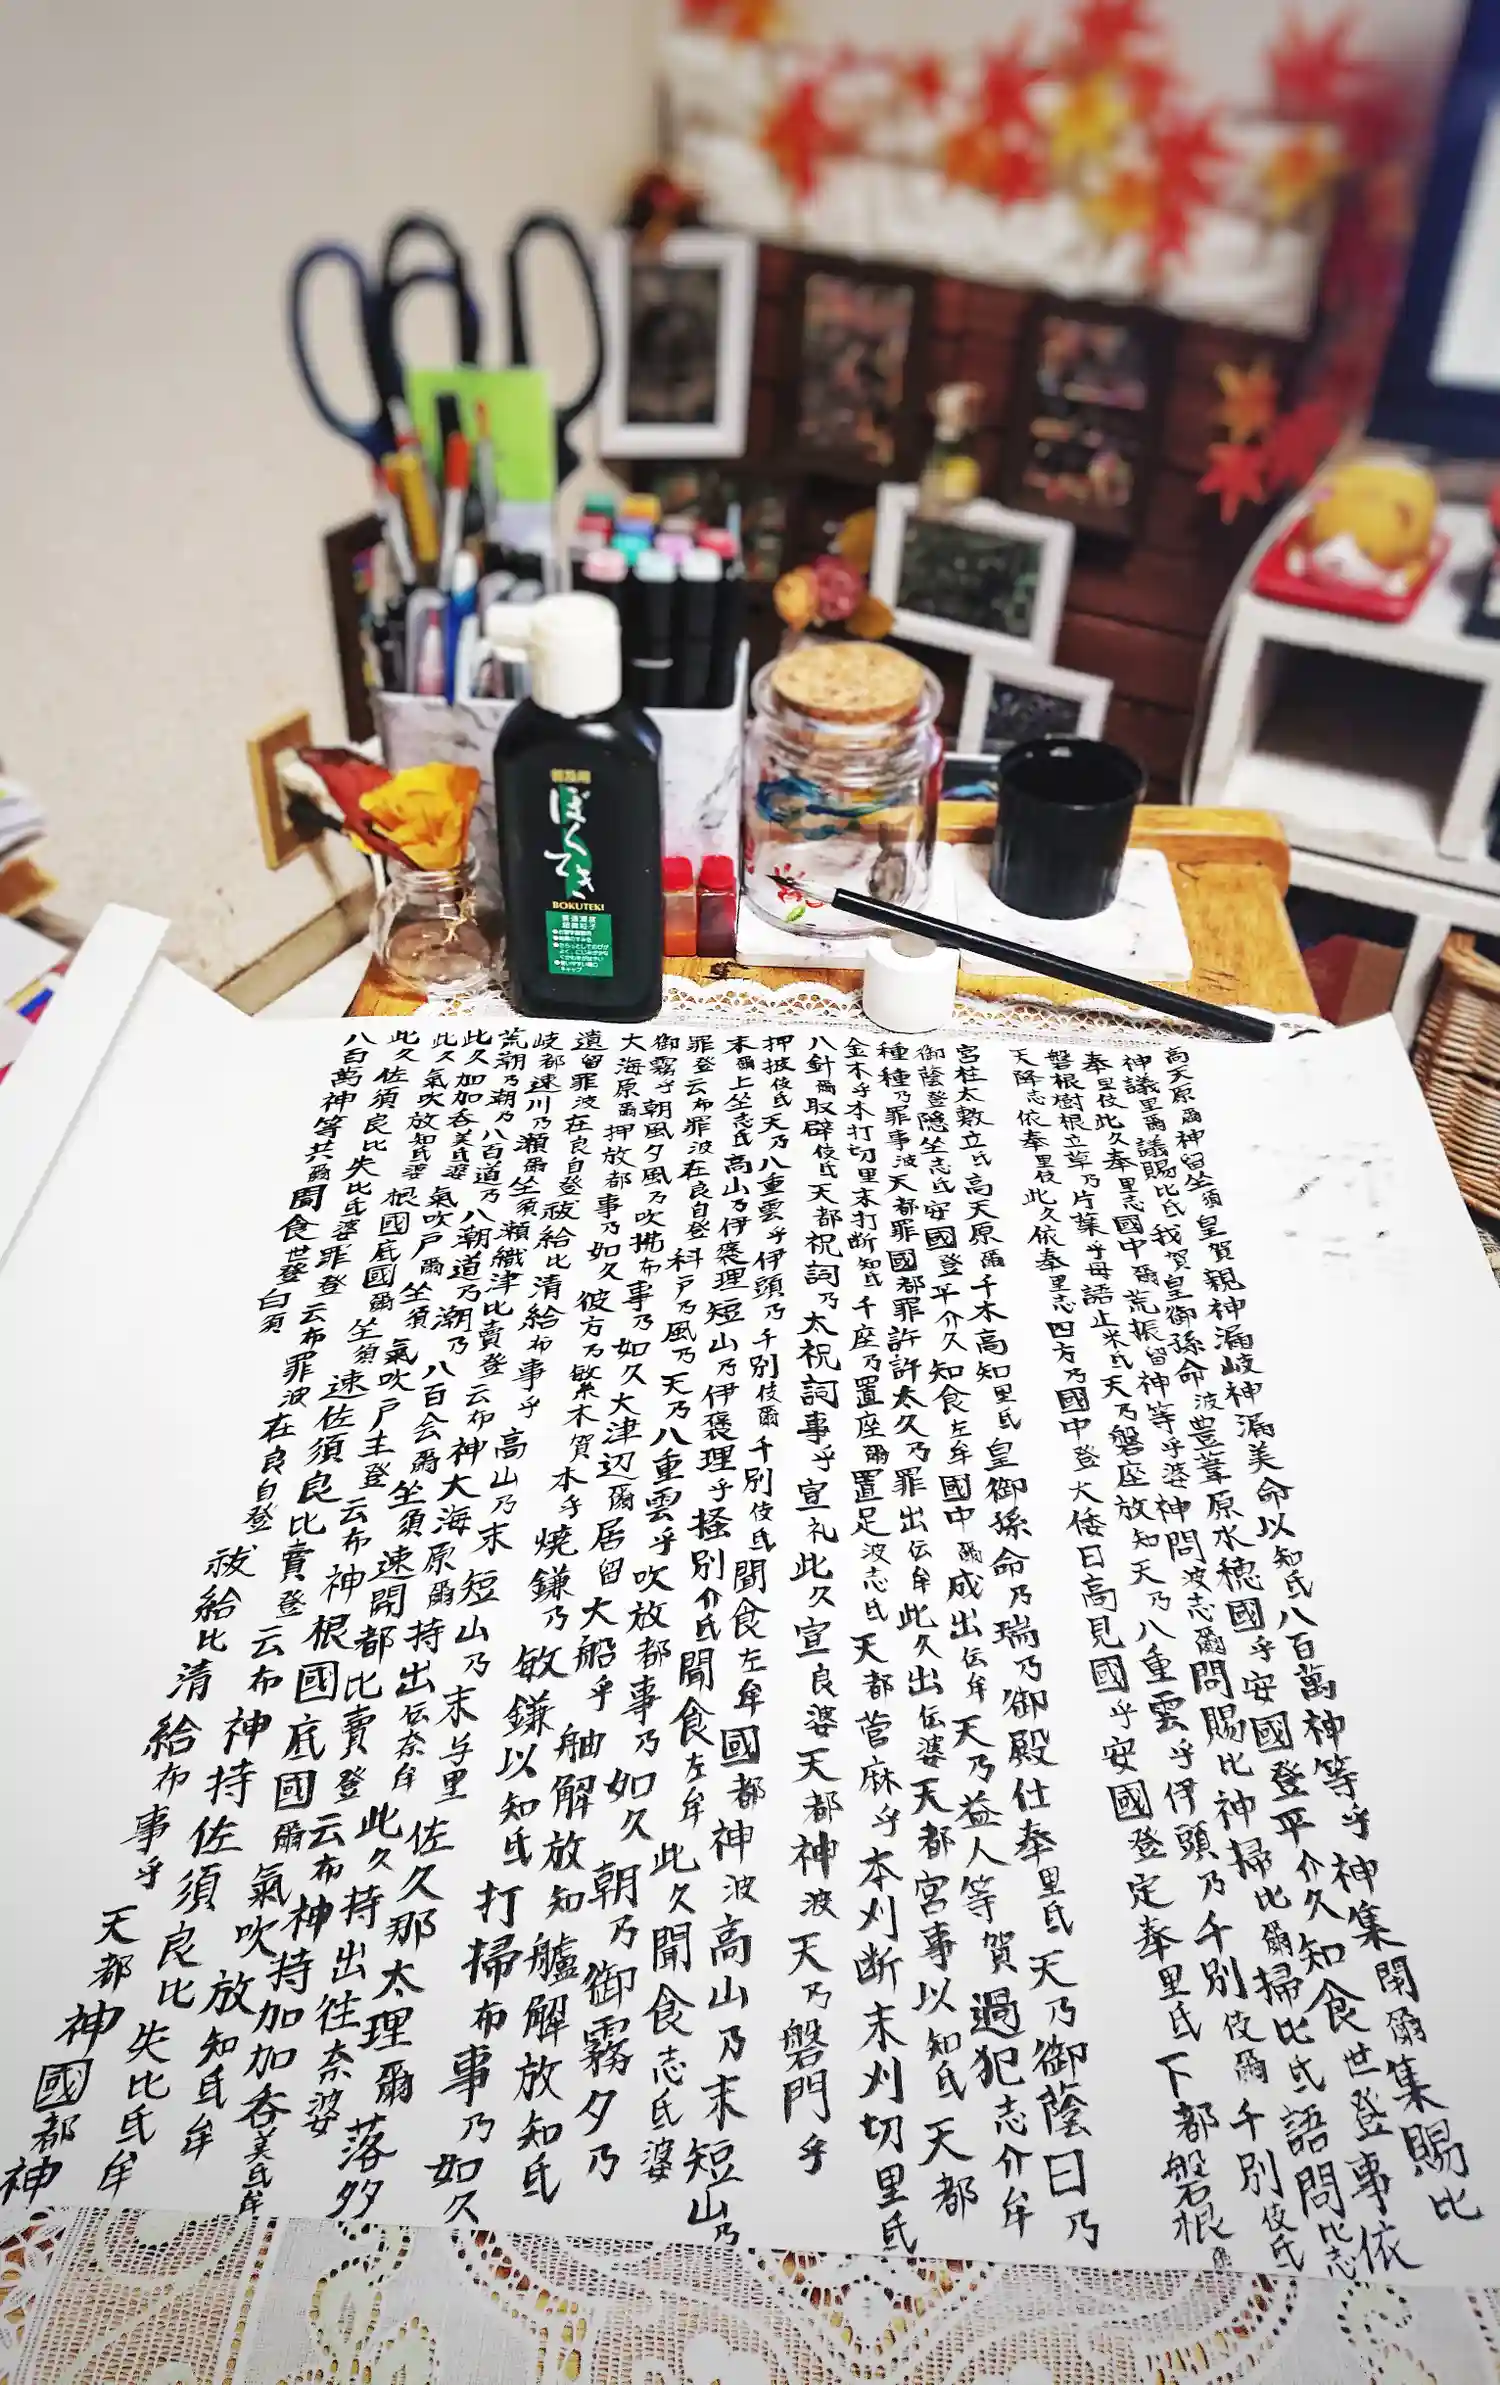 高天原爾神留坐須皇賀親神漏岐神漏美命以知氐八百萬神等乎神集閇爾集賜比
神議里爾議賜比氐我賀皇御孫命波豊葦原水穂國乎安國登平介久知食世登事依
奉里伎此久奉里志國中爾荒振留神等乎婆神問波志爾問賜比神掃比爾掃比氐語問比志
磐根樹根立草乃片葉乎母語止米氐天乃磐座放知天乃八重雲乎伊頭乃千別伎爾千別伎氐
天降志依奉里伎此久依奉里志四方乃國中登大倭日高見國乎安國登定奉里氐下都磐根爾
宮柱太敷立氐高天原爾千木高知里氐皇御孫命乃瑞乃御殿仕奉里氐天乃御蔭日乃
御蔭登隠坐志氐安國登平介久知食左牟國中爾成出伝牟天乃益人等賀過犯志介牟
種種乃罪事波天都罪國都罪許許太久乃罪出伝牟此久出伝婆天都宮事以知氐天都
金木乎本打切里末打断知氐千座乃置座爾置足波志氐天都菅麻乎本刈断末刈切里氐
八針爾取辟伎氐天都祝詞乃太祝詞事乎宣礼此久宣良婆天都神波天乃磐門乎
押披伎氐天乃八重雲乎伊頭乃千別伎爾千別伎氐聞食左牟國都神波高山乃末短山乃
末爾上坐志氐高山乃伊褒理短山乃伊褒理乎掻別介氐聞食左牟此久聞食志氐婆
罪登云布罪波在良自登科戸乃風乃天乃八重雲乎吹放都事乃如久朝乃御霧夕乃
御霧乎朝風夕風乃吹拂布事乃如久大津辺爾居留大船乎舳解放知艫解放知氐
大海原爾押放都事乃如久彼方乃繁木賀本乎焼鎌乃敏鎌以知氐打掃布事乃如久
遺留罪波在良自登祓給比清給布事乎高山乃末短山乃末与里佐久那太理爾落多
岐都速川乃瀬爾坐須瀬織津比賣登云布神大海原爾持出伝奈牟此久持出往奈婆
荒潮乃潮乃八百道乃八潮道乃潮乃八百会爾坐須速開都比賣登云布神持加加呑美氐牟
此久加加呑美氐婆氣吹戸爾坐須氣吹戸主登云布神根國底國爾氣吹放知氐牟
此久氣吹放知氐婆根國底國爾坐須速佐須良比賣登云布神持佐須良比失比氐牟
此久佐須良比失比氐婆罪登云布罪波在良自登祓給比清給布事乎天都神國都神
八百萬神等共爾聞食世登白須
普及用
ぼくてき
BOKUTEKI
普通濃度
超微粒子